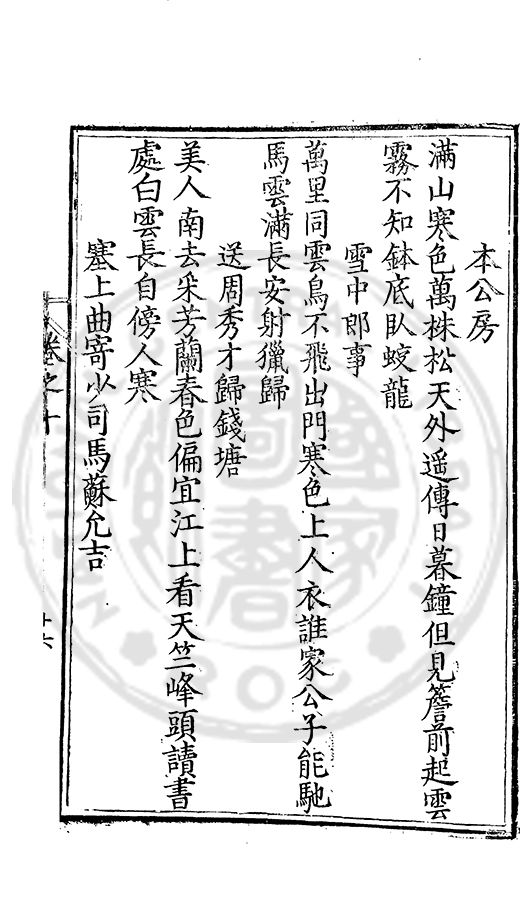 本公房
滿山寒色萬株松天外遥傳日暮鐘但見簷前起雲
霧不知鉢底臥蛟龍
雪中郎事
萬里同雲鳥不飛出門寒色上人衣誰家公子能馳
馬雲滿長安射獵歸
送周秀才歸錢塘
美人南去采芳蘭春色偏宜江上看天竺峰頭讀書
處白雲長自傍人寒
塞上曲寄少司馬蘇允吉
卷之十
十六